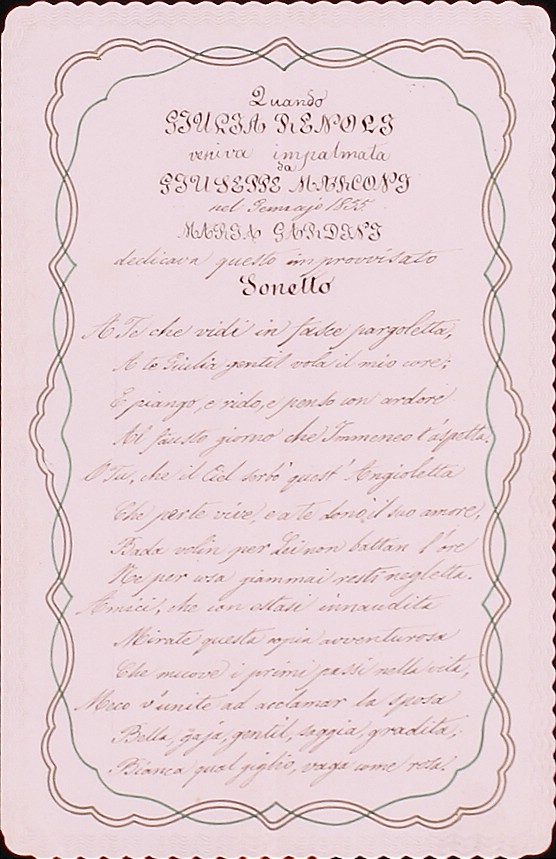 Quando
GIULIA RENOLI
veniva impalmata
da
GIUSEPPE MARCONI
nel Gennajo 1855
MARIA GARDINI
dedicava questo improvvisato
Sonetto
A Te che vidi in fasce pargoletta,
A te Giulia gentil vola il mio core;
E piango, e rido, e penso con ardore
Al fausto giorno che Immeneo t'aspetta.
O Tu, che il Ciel serbò quest' Angioletta
Che per te vive, e a te donò il suo amore,
Bada volin per Lei non battan l'ore
Nè per usa giammai resti negletta.
Amici, che con estasi innaudita
Mirate questa copia avventurosa
Che muove i primi passi nella vita,
Meco v'unite ad acclamar la sposa
Bella, gaja, gentil, saggia, gradita,
Bianca qual giglio, vaga come rosa.